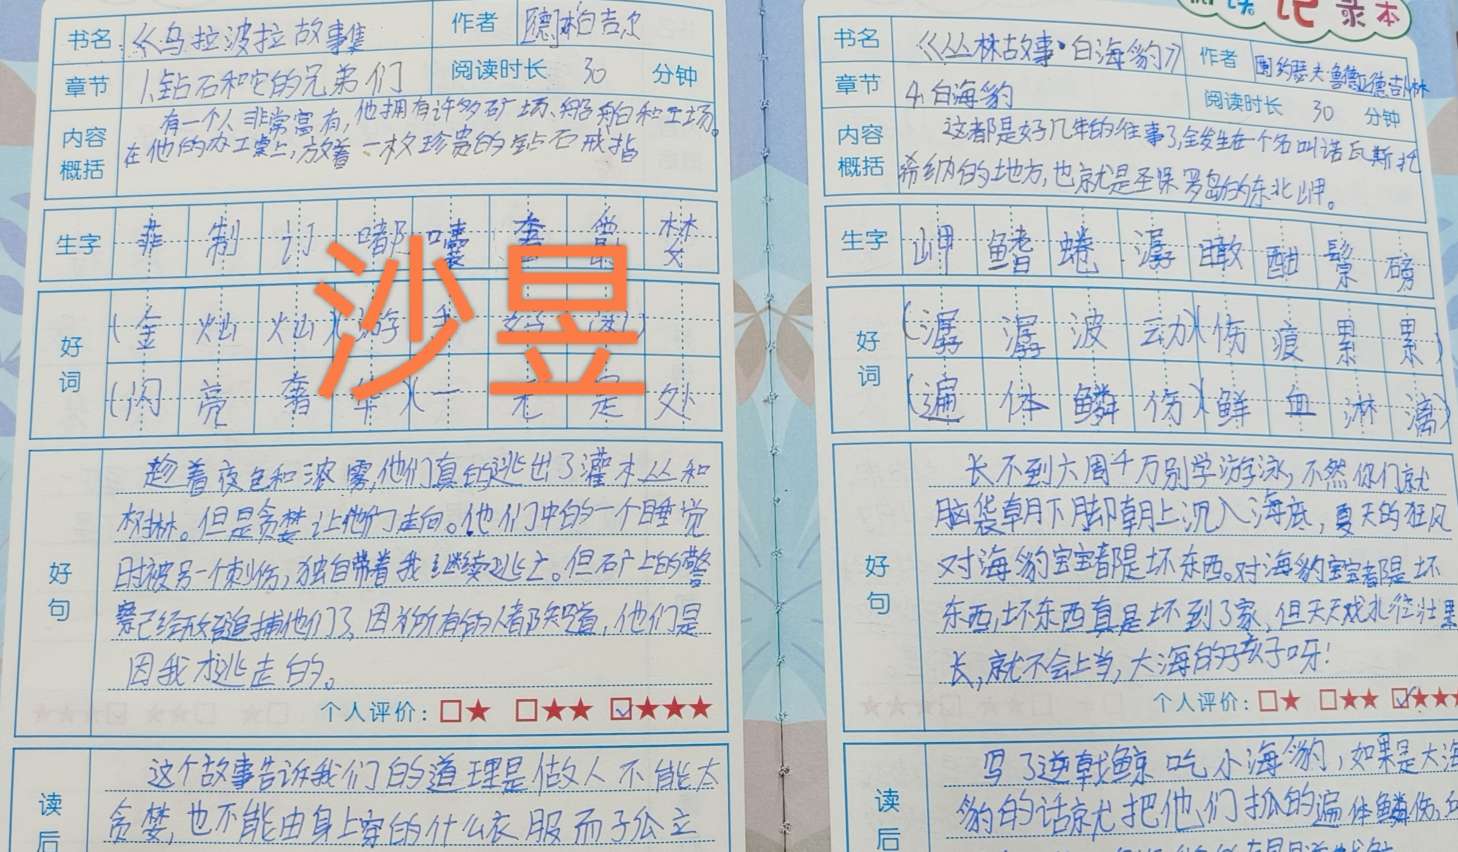 书名
《乌拉波拉故事集
作者
[德]柏吉尔
章节
1.钻石和它的兄弟们
阅读时长 30 分钟
内容
概括
有一个人非常富有,他拥有许多矿场、船舶和工场。
在他的办工桌上,放着一枚珍贵的钻石戒指
生字
非 制 订 嘟 囔 婪
好
词
(金 灿 灿)
(闪 亮 奢 华)(一 无 是 处
好
句
趁着夜色和浓雾,他们真的逃出了灌木丛和
树林。但是贪婪让他们走向。他们中的一个睡觉
时被另一个刺伤,独自带着我继续逃亡。但矿上的警
察已经放追捕他们了,因为所有的人都知道,他们是
因我才逃走的。
个人评价: ★ ★★ ★★★
读
后
这个故事告诉我们的道理是做人不能太
贪婪,也不能由身上穿的什么衣服而子公立
沙昱
记录本
书名
《丛林故事•白海豹》
作者
章节
4.白海豹
阅读时长 30 分钟
内容
概括
这都是好几年的往事了,全发生在一个名叫诺瓦斯托
希纳的地方,也就是圣保罗岛的东北岬。
生字
岬 鳍 蜷 潺 瞰 酣 鬃 磅
好
词
(潺 潺 波 动)(伤 痕 累 累)
(遍 体 鳞 伤)(鲜 血 淋 漓)
好
句
长不到六周千万别学游泳,不然你们就
脑袋朝下脚朝上沉入海底,夏天的狂风
对海豹宝宝都是坏东西。对海豹宝宝都是坏
东西,坏东西真是坏到了家,但天天戏水往壮里
长,就不会上当,大海的孩子呀!
个人评价: ★ ★★ ★★★
读
后
写了逆戟鲸吃小海豹,如果是大海
豹的话就把他们抓的遍体鳞伤,